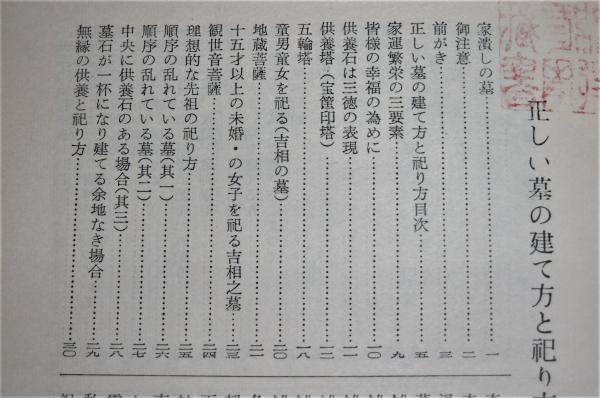 正しい墓の建て方と祀り方
家潰しの墓……………一
御注意……………二
前がき……………三
正しい墓の建て方と祀り方目次……………五
家運繁栄の三要素……………九
皆様の幸福の為めに……………一〇
供養石は三徳の表現……………一一
供養塔(宝篋印塔)……………一二
五輪塔……………一八
童男童女を祀る(吉相の墓)……………二〇
地蔵菩薩……………二一
十五才以上の未婚・の女子を祀る吉相之墓……………二三
観世音菩薩……………二四
理想的な先祖の祀り方……………二五
順序の乱れている墓(其一)……………二六
順序の乱れている墓(其二)……………二七
中央に供養石のある場合(其三)……………二八
墓石が一杯になり建てる余地なき場合……………二九
無縁の供養と祀り方……………三〇